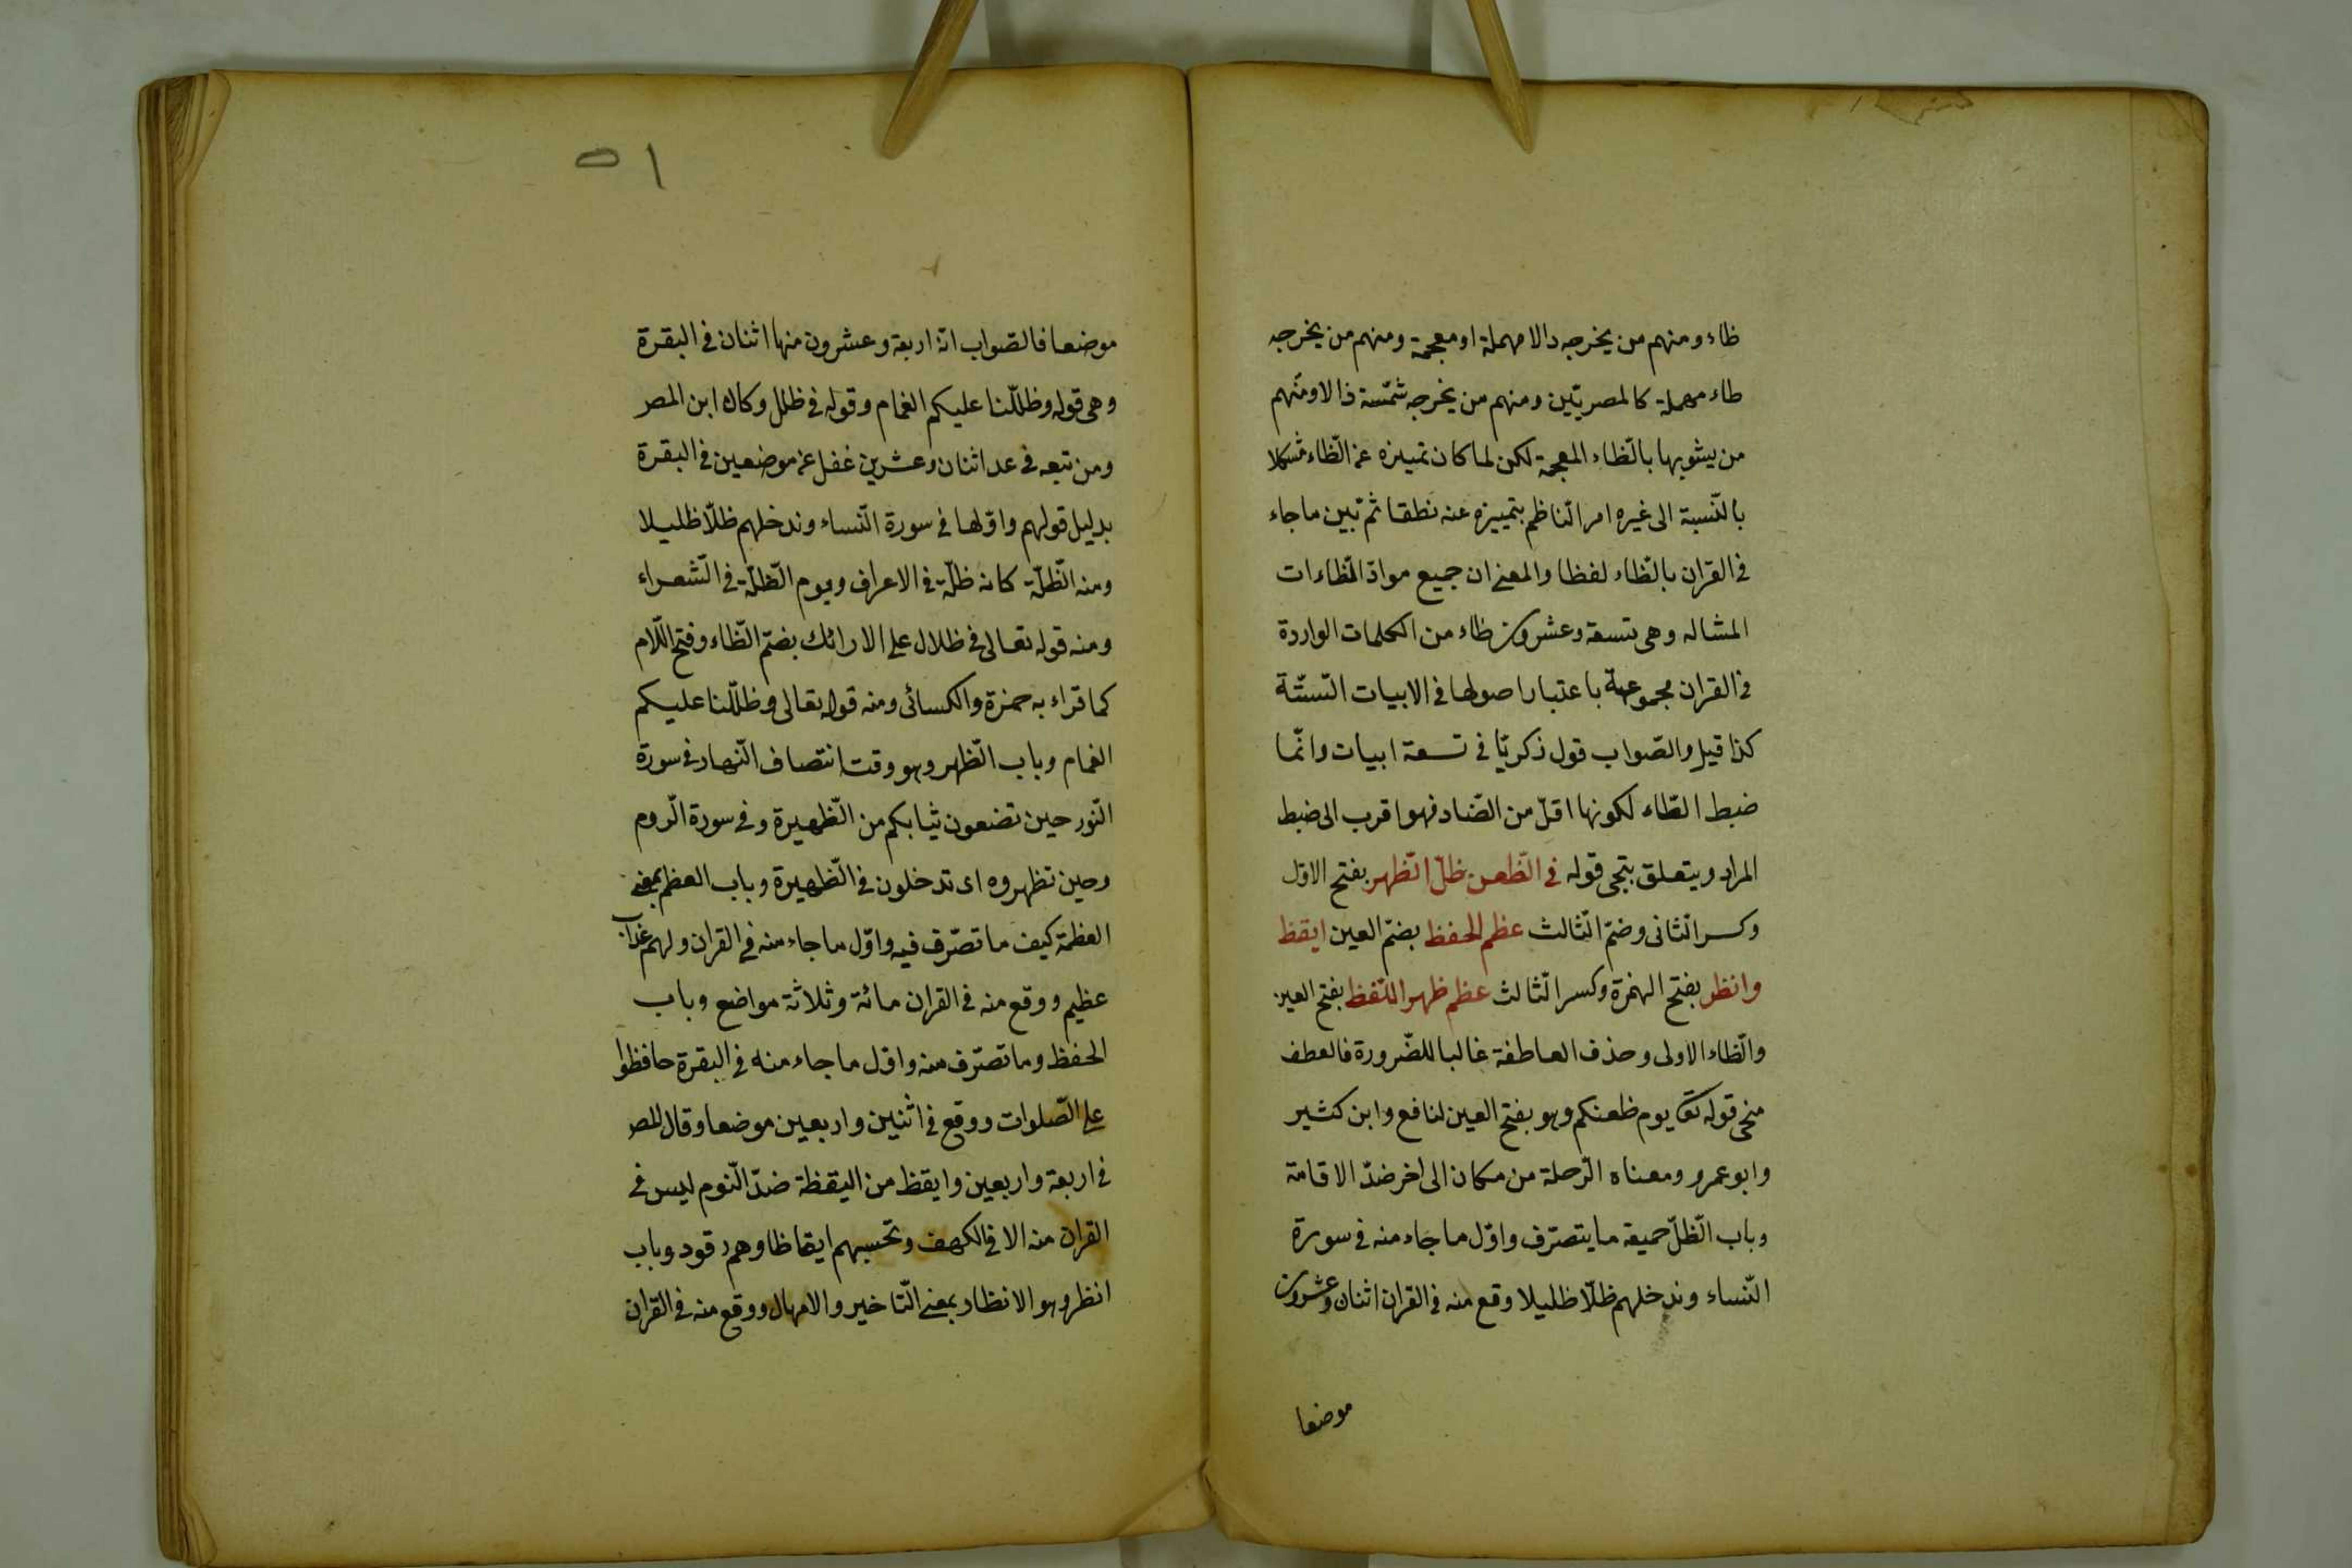 ظاء ومنهم من يخرجه دالا مهملة او معجمة ومنهم من يخرجه
طاء مهملة كالمصريّين ومنهم من يخرجه شمّسة ذالا ومنهم
من يشوبها بالظّاء المعجمة لكن لما كان تمييزه عن الظّاء مشكلا
بالنّسبة الى غيره امر النّاظم بتمييزه عنه نطقا ثم بّين ما جاء
فى القران بالظّاء لفظا والمعنى ان جميع موادّ الظّاءات
المشاله وهى تسعة وعشرون ظاء من الكلمات الواردة
فى القران مجموعة باعتبار اصولها فى الابيات السّتّة
كذا قيل والصّواب قول زكريّا فى تسعة ابيات وانّما
ضبط الظّاء لكونها اقلّ من الضّاد فهو اقرب الى ضبط
المراد ويتعلق بتجى قوله فى الظّعن ظلّ الظّهر بفتح الاوّل
وكسر الثانى وضمّ الثّالث عظم الحفظ بضمّ العين ايقظ
وانظر بفتح الهمزة وكسر الثّالث عظم ظهر اللّفظ بفتح العين
والظّاء الاولى وحذف العاطفة غالبا للضّرورة فالعطف
منحى قوله تع يوم ظعنكم وهو بفتح العين لنافع وابن كثير
وابو عمرو ومعناه الرّحلة من مكان الى اخر ضدّ الاقامة
وباب الظّلّ جميعه ما يتصرّف واوّل ما جاء منه فى سورة
النّساء وندخلهم ظلّا ظليلا وقع منه فى القران اثنان وعشرون
موضعا
٥١
موضعا فالصّواب انّه اربعة وعشرون منها اثنان فى البقرة
وهى قوله وظللّنا عليكم الغمام وقوله فى ظلل وكان ابن المصر
ومن تبعه فى عد اثنان وعشرين غفل عن موضعين فى البقرة
بدليل قولهم واوّلها فى سورة النّساء وندخلهم ظلّا ظليلا
ومنه الظّلّة كانه ظلّة فى الاعراف ويوم الظّلّة فى الشّعراء
ومنه قوله تعالى فى ظلال على الارائك بضمّ الظّاء وفتح اللّام
كما قراء به حمزة والكسائى ومنه قوله تعالى وظللّنا عليكم
الغمام وباب الظّهر وهو وقت انتصاف النّهار فى سورة
النّور حين تضعون ثيابكم من الظّهيرة وفى سورة الرّوم
وحين تظهروه اى تدخلون فى الظّهيرة وباب العظم بمعنى
العظمة كيف ما تصرّف فيه واوّل ما جاء منه فى القران ولهم عذاب
عظيم ووقع منه فى القران مائة وثلاثة مواضع وباب
الحفظ وما تصرّف منه واوّل ما جاء منه فى البقرة حافظوا
على الصّلوات ووقع فى اثنين واربعين موضعا وقال المصر
فى اربعة واربعين وايقظ من اليقظة ضدّ النّوم ليس فى
القران منه الا فى الكهف وتحسبهم ايقاظا وهم رقود وباب
انظر وهو الانظار بمعنى التّاخير والامهال ووقع منه فى القران